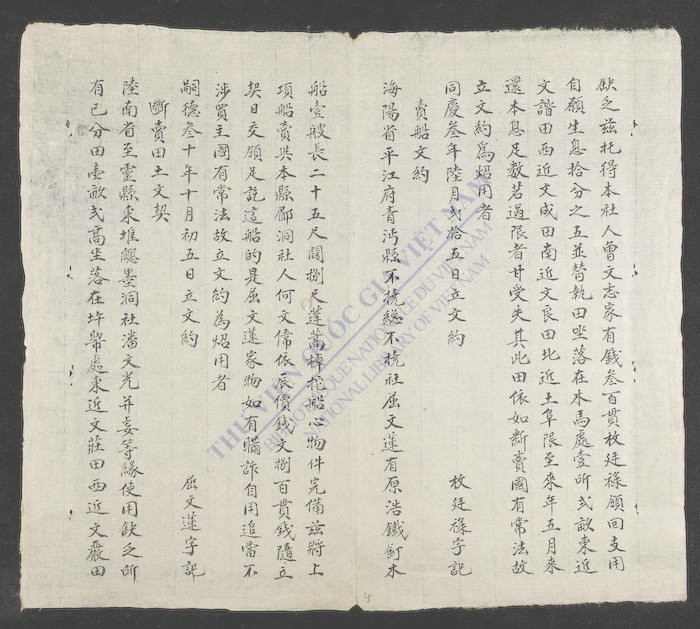 缺乏兹托得本社人曾文志家有錢叁百貫枚廷祿願回支用
自願生息拾分之五並替執田坐落在本馬處壹所弍畝東近
文諧田西近文成田南近文良田北近土阜限至來年五月來
還本息足数若過限者甘受失其此田依如斷賣國有常法故
立文約爲炤用者
同慶叁年陸月弍拾五日立文約
枚廷祿字記
賣船文約
海陽省平江府青沔縣不抗総不抗社屈文蓮有原浩鐵釘木
船壹艘長二十五尺闊捌尺蓬蒿棹柁船心物件完備兹將上
項船賣與本縣郿洞社人何文偹依辰價錢文捌百貫錢隨立
契日交願足訖這船的是屈文蓮家物如有瞞詐自用追當不
涉買主國有常法故立文約為炤用者
嗣德叁十年十月初五日立文約
屈文蓮字記
斷賣田土文契
陸南省至靈縣東堆總墨洞社潘文光并妻等緣使用缺乏所
有己分田壹畝弍高坐落在圩幣處東近文莊田西近文嚴田
THƯ VIỆN QUỐC GIA VIỆT NAM
BIBLIOTHÈQUE NATIONALE DU VIETNAM
NATIONAL LIBRARY OF VIETNAM
4